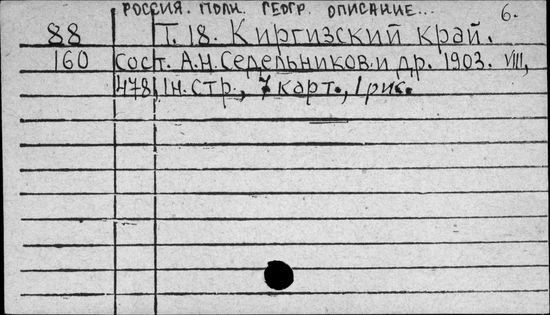 РОССИЯ. ПОЛН. ГЕОГР. ОПИСАНИЕ... 6.
88 Т. 18. Киргизский край.
160 Сост. А.Н. Седельников и др. 1903. VIII,
478, 1н. стр., 7 карт., 1 рис.